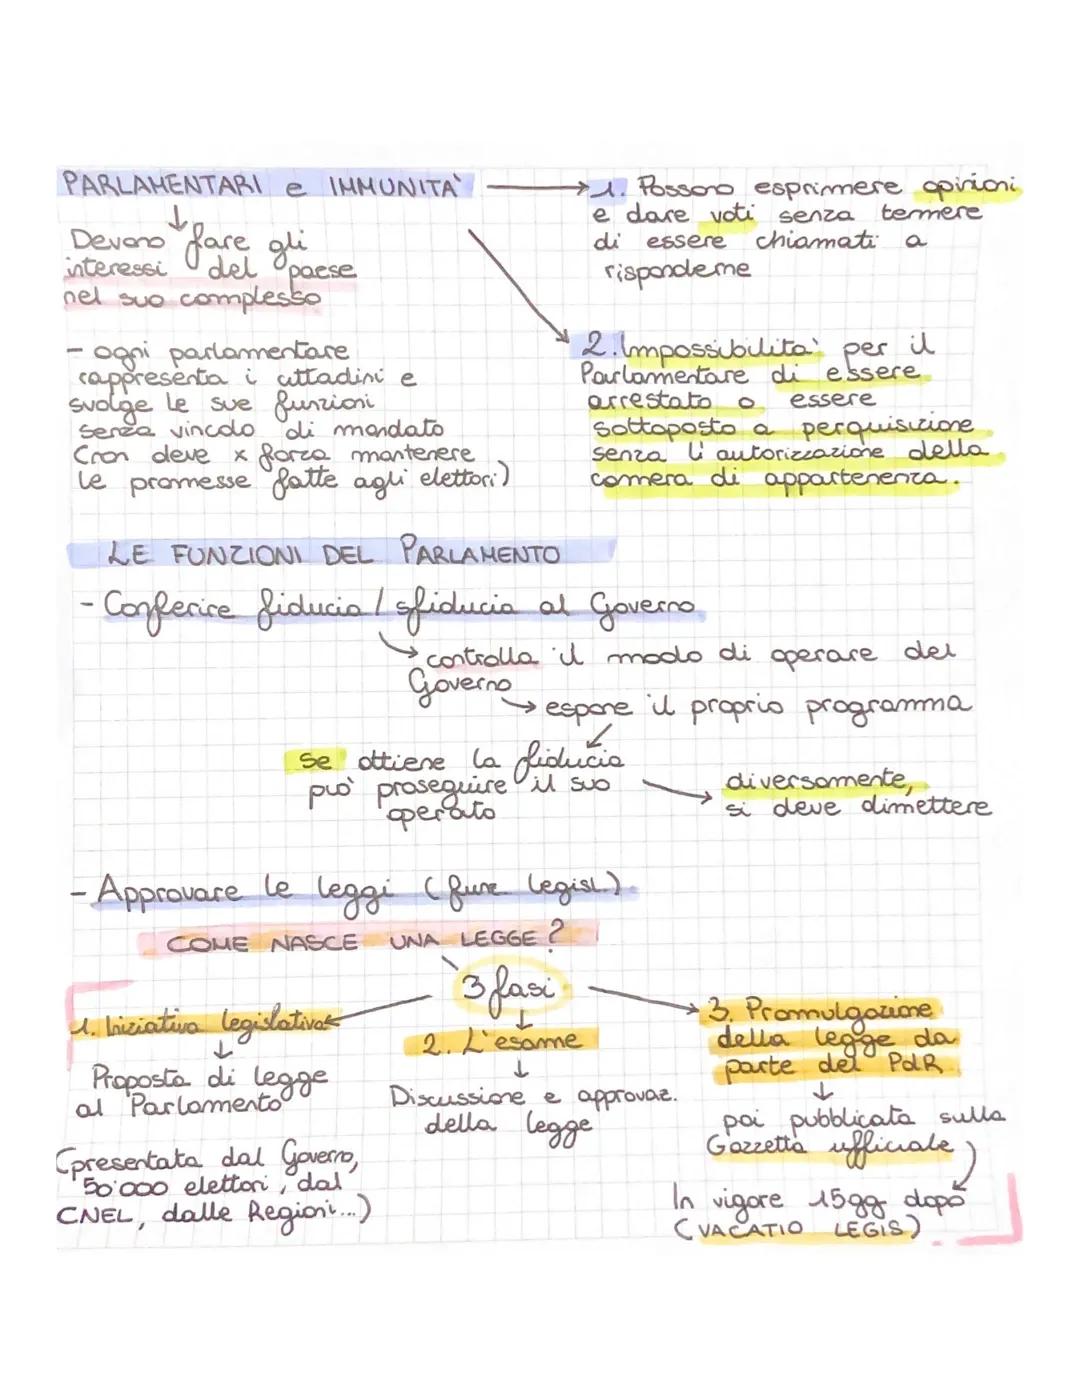 PARLAMENTARI e IMMUNITÀ
Devono fare gli
interessi del paese
nel suo complesso
- ogni parlamentare
rappresenta i cittadini e
svolge le sue funzioni
senza vincolo di mandato
(non deve x forza mantenere
le promesse fatte agli elettori)
1. Possono esprimere opinioni
e dare voti senza temere
di essere chiamati a
risponderne
2. Impossibilità per il
Parlamentare di essere
arrestato o essere
sottoposto a perquisizione
senza l'autorizzazione della
camera di appartenenza.
LE FUNZIONI DEL PARLAMENTO
- Conferire fiducia / sfiducia al Governo
controlla il modo di operare del
Governo
espone il proprio programma
se ottiene la fiducia
può proseguire il suo
operato
diversamente,
si deve dimettere
- Approvare le leggi (funz legisl.)
COME NASCE UNA LEGGE?
3 fasi
1. Iniziativa legislativa
Proposta di legge
al Parlamento
(presentata dal Governo,
50'000 elettori, dal
CNEL, dalle Regioni...)
2. L'esame
Discussione e approvaz.
della legge
3. Promulgazione
della legge da
parte del PdR
poi pubblicata sulla
Gazzetta ufficiale
In vigore 15gg dopo
(VACATIO LEGIS)